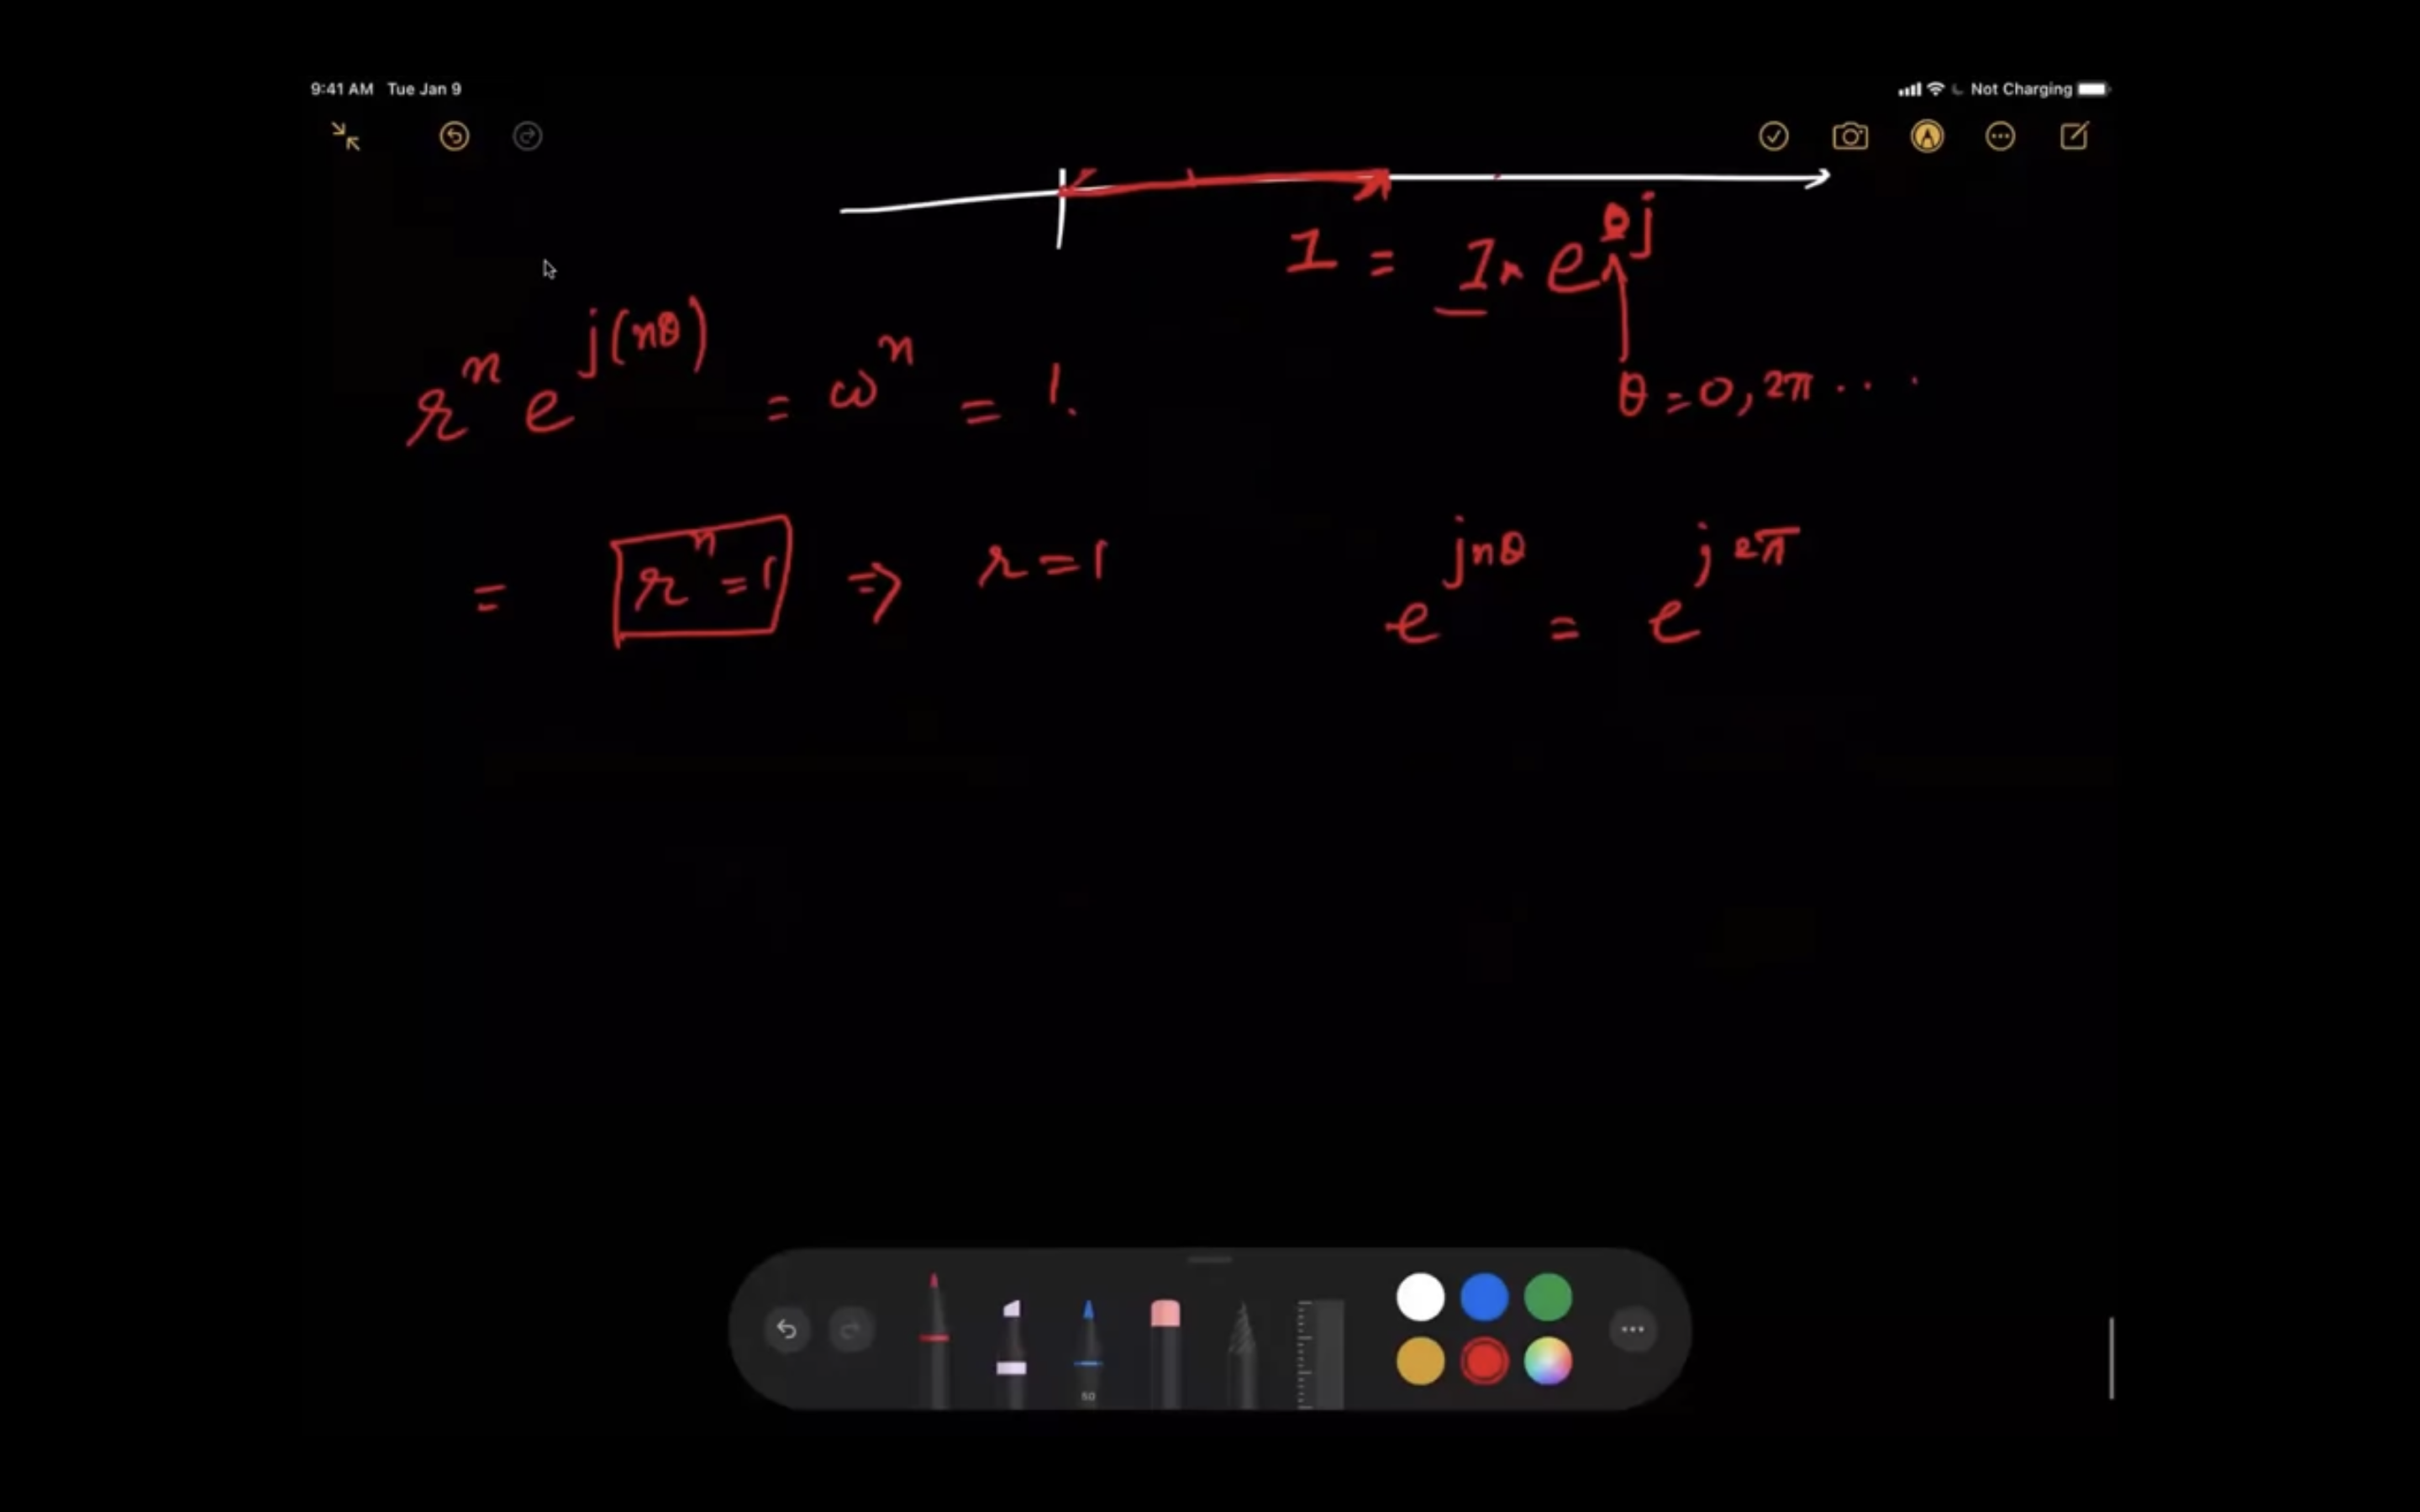 9:41 AM Tue Jan 9 Not Charging
1 = 1 × e^{0j}
r^n e^{j(nθ)} = ω^n = 1.
θ = 0, 2π . . .
= r^n = 1 ⇒ r = 1
e^{jnθ} = e^{j2π}
50